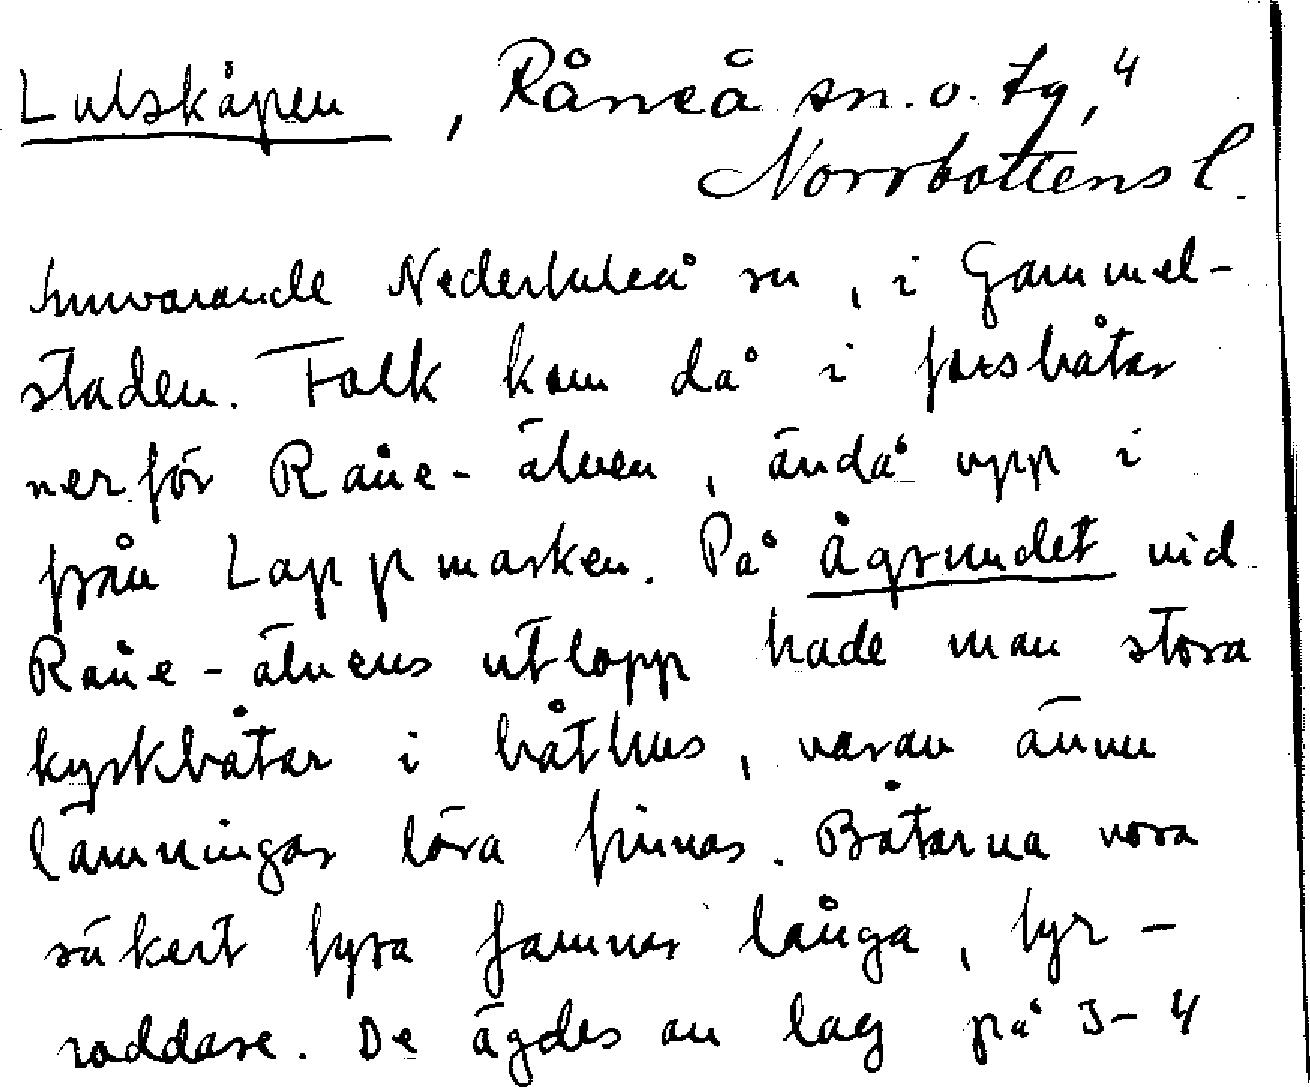 Lulskåpen, Råneå sn. o. tg, 4
Norrbottens l.
nuvarande Nederluleå sn, i Gammel-
staden. Folk kom då i forsbåtar
nerför Råne-älven, ända upp i
från Lappmarken. På Ågrundet vid
Råne-älvens utlopp hade man stora
kyrkbåtar i båthus, varav ännu
lämningar lära finnas. Båtarna vora
säkert fyra famnar långa, fyr-
roddare. De ägdes av lag på 3-4